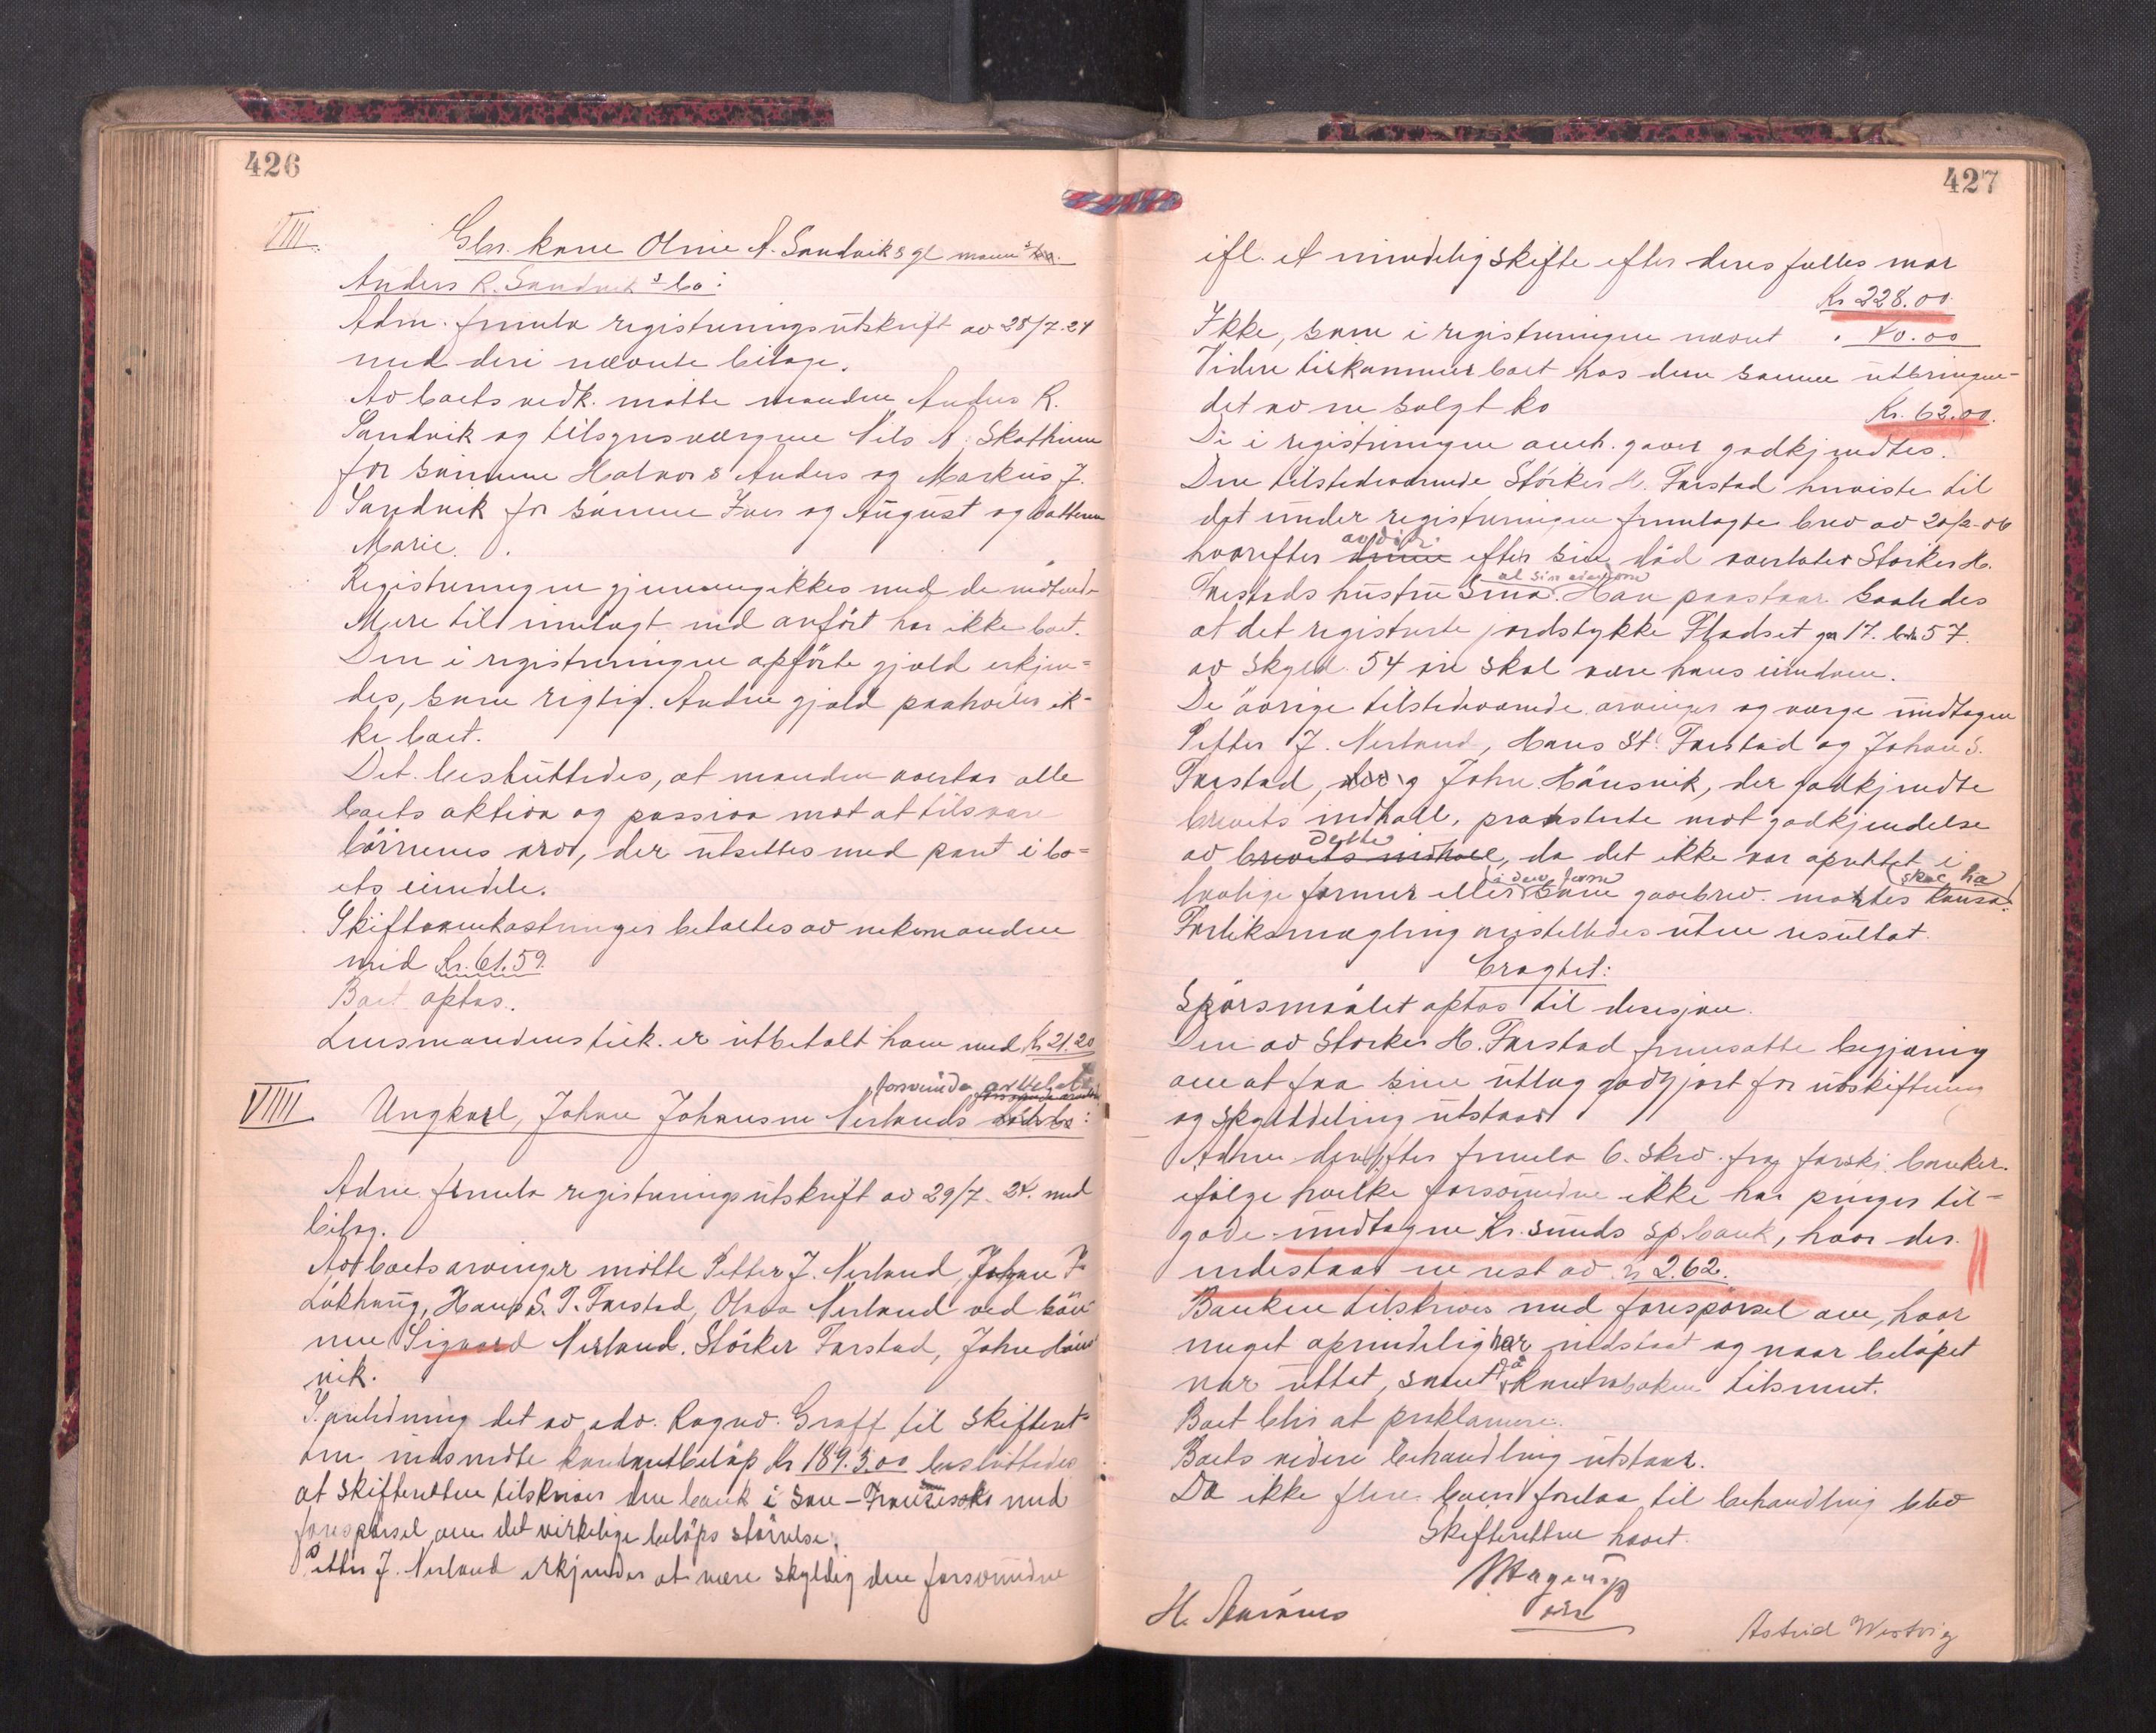 426
VIII. Gbr. kone Oline A. Sandviks gl mann's bo.
Anders R. Sandvik's bo:
Adm. fremla registreringsutskrift av 28/7.24
med deri nævnte bilage.
Av boets vedk. møtte manden Anders R.
Sandvik og tilsynsværgene Nils N. Skothun
for sønnene Halvor & Anders og Markus J.
Sandvik for sønnene Iver og August og datteren
Marie.
Registreringen gjennemgikkes med de møtende.
Mere til indtægt end anført har ikke boet.
Den i registreringen opførte gjæld erkjen=
des, som rigtig. Anden gjæld paahviler ik=
ke boet.
Det besluttedes, at manden overtar alle
boets aktiva og passiva mot at tilsvare
børnenes arv, der utsettes med pant i bo=
ets eiendele.
Skifteomkostninger betaltes av enkemanden
med Kr. 61.59.
Boet optas.
Lensmandens tilk. er utbetalt ham med Kr 21.20
VIIII. Ungkarl, Johan Johansen Nerlands dødsbo:
forsvunde
Adm. fremla registreringsutskrift av 29/7. 24. med
bilag.
Av boets arvinger møtte Petter J. Nerland, Johan J.
Løkhaug, Hans S. T. Farstad, Olava Nerland ved søn=
nen Sigvard Nerland. Størker Farstad, John Haus=
vik.
I anledning det av adv. Ragnv. Graff til skifteret=
ten indsendte kontantbeløp Kr 189.3.00 besluttedes
at skifteretten tilskriver den bank i San-Francisco med
forespørsel om det virkelige beløps størrelse.
Petter J. Nerland erkjender at være skyldig den forsvundne
427
ifl. et mindelig skifte efter deres fælles mor
Kr 228.00
Ikke, som i registreringen nævnt . 80.00
Videre tilkommer boet hos den samme utbringen=
det av en solgt ko Kr. 62.00.
De i registreringen omh. gaver godkjendtes.
Den tilstedeværende Størker H. Farstad henviste til
det under registreringen fremlagte brev av 20/2-06
hvorefter denne efter sin død overlater Størker H.
al sin eiendom
Farstads hustru Sina. Han paastaar saaledes
at det registrerte jordstykke Fladset gn 17. bn 57.
av skyld 54 øre skal være hans eiendom.
De øvrige tilstedeværende arvinger og værge undtagen
Petter J. Nerland, Hans St. Farstad og Johan S.
Farstad, og John Hausvik, der godkjendte
brevets indhold, protesterte mot godkjendelse
dette
av brevets indhold, da det ikke var oprettet i
i den form skal ha
lovlige former eller som gavebrev
Forliksmegling anstilledes uten resultat.
Eragtet:
Spørsmaalet optas til desisjon.
Den av Størker H. Farstad fremsatte begjæring
om at faa sine utlæg godtgjort for utskiftning
og skylddeling utstaar
Adm. derefter fremla 6. skriv. fra forskj. banker.
ifølge hvilke forsvundne ikke har penger til=
gode undtagen Kr.sunds sp.bank, hvor der
indestaar en rest av kr 2.62.
Banken tilskrives med forespørsel om, hvor
meget oprindelig har indestaat og naar beløpet
var uttat, samt da kontraboken tilsendt.
Boet blir at proklamere.
Boets videre behandling utstaar.
Da ikke flere boer forelaa til behandling blev
skifteretten hævet.
Astrid Westvig